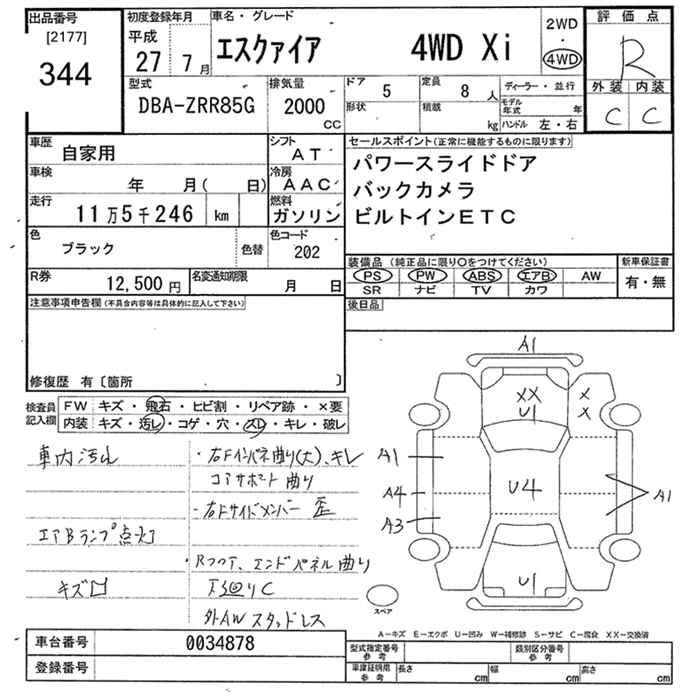 出品番号
[2177]
344
初度登録年月
平成
27 7月
車名・グレード
エスクァイア 4WD Xi
2WD
・
4WD
評価点
R
外装 内装
C C
型式
DBA-ZRR85G
排気量
2000
CC
ドア 5
形状
定員 8 人
積載 kg
ディーラー・並行
モデル年式 年
ハンドル 左・右
車歴 自家用
シフト AT
車検 年 月( 日)
冷房 AAC
走行 11万5千246 km
燃料 ガソリン
色 ブラック 色替
色コード 202
R券 12,500円
名変通知期限 月 日
セールスポイント(正常に機能するものに限ります)
パワースライドドア
バックカメラ
ビルトインETC
装備品(純正品に限り○をつけてください)
PS PW ABS エアB AW
SR ナビ TV カワ
新車保証書
有・無
後日品
注意事項申告欄(不具合内容等は具体的に記入して下さい)
修復歴 有〔箇所 〕
検査員記入欄
FW キズ・飛石・ヒビ割・リペア跡・×要
内装 キズ・汚レ・コゲ・穴・スレ・キレ・破レ
車内汚れ
エアBランプ点灯
キズ口
・右Fインパネ曲り(大)、キレ
コアサポート曲り
・右Fサイドメンバー歪
・Rフロア、エンドパネル曲り
下廻りC
外AWスタッドレス
A1
XX
U1
X
X
A1
A4
A3
U4
A1
U1
スペア
A－キズ E－エクボ U－凹み W－補修跡 S－サビ C－腐食 XX－交換済
車台番号 0034878
登録番号
型式指定番号 参考
類別区分番号 参考
車庫証明用 参考
長さ cm 幅 cm 高さ cm